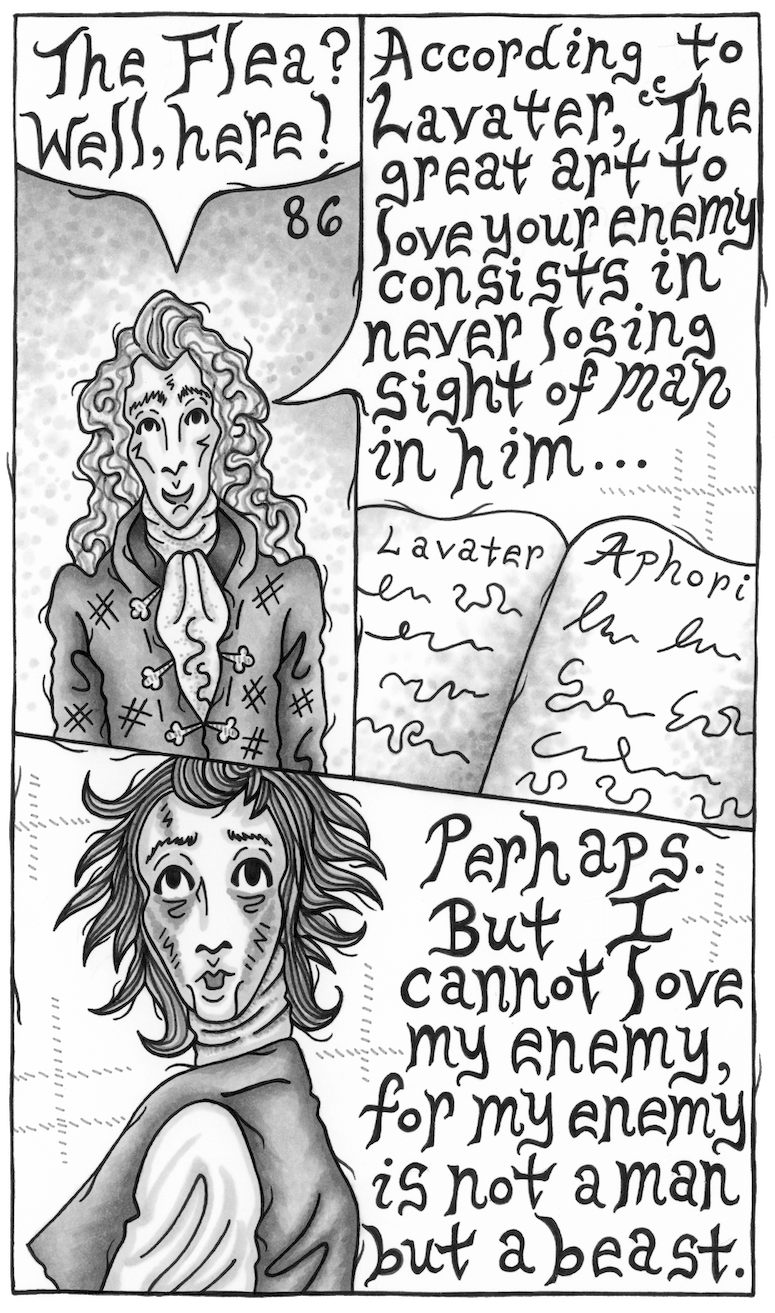 The Flea?
Well, here!
86
According to
Lavater, "The
great art to
love your enemy
consists in
never losing
sight of man
in him...
Lavater
Aphori
Perhaps.
But I
cannot love
my enemy,
for my enemy
is not a man
but a beast.